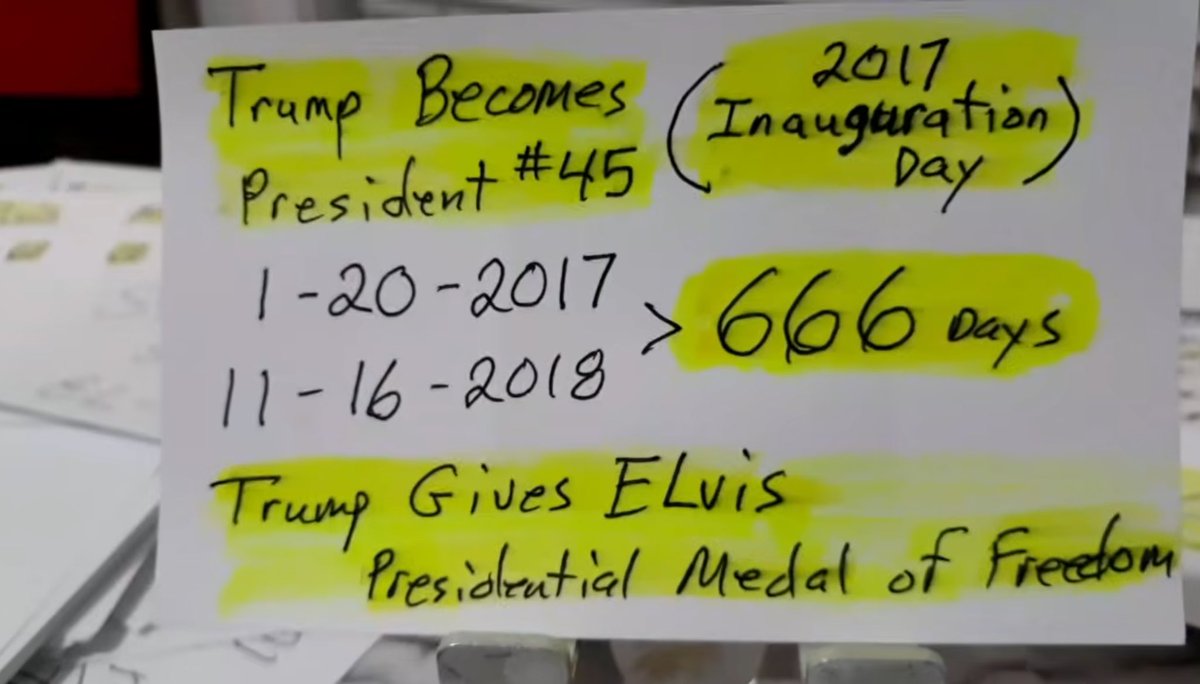 Trump Becomes
President #45
(2017
Inauguration
Day)
1-20-2017
11-16-2018
> 666 Days
Trump Gives ELvis
Presidential Medal of Freedom